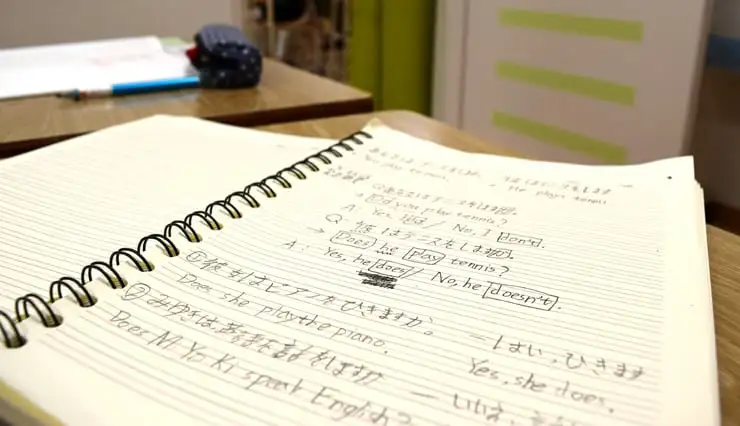 You play tennis. He plays tennis
Q あなたはテニスをしますか。
→ Do you play tennis?
A: Yes, I do / No, I don't.
Q: 彼はテニスをしますか。
→ Does he play tennis?
A: Yes, he does / No, he doesn't.
① 彼女はピアノをひきますか。 ー はい、ひきます
Does she play the piano. Yes, she does.
② みゆきは をしますか ー いいえ、
Does MiYuKi speak English?